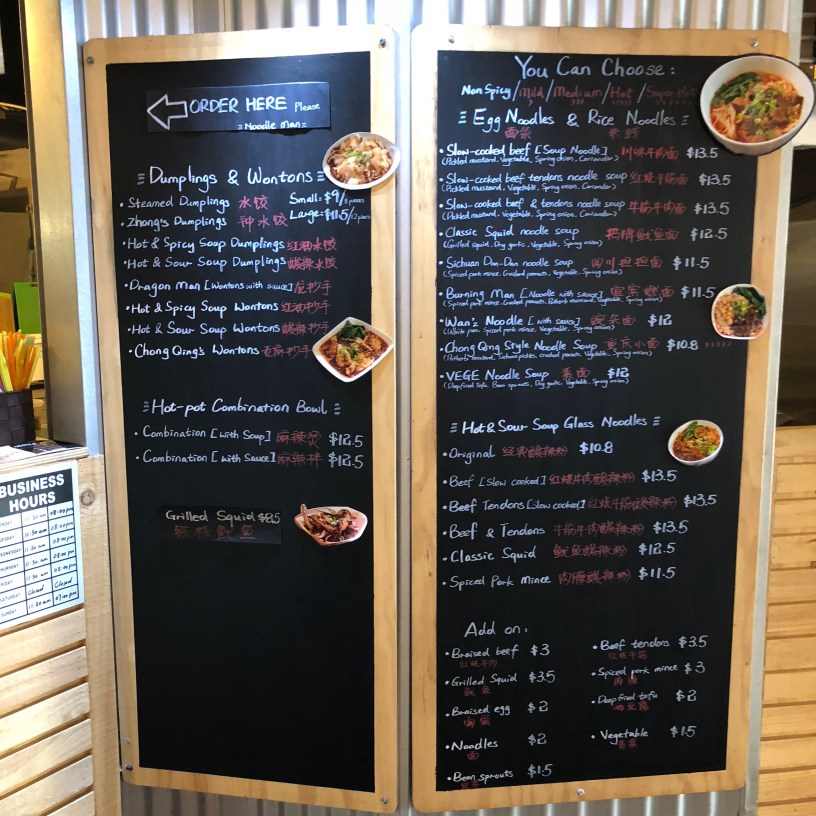 ORDER HERE Please
= Noodle Man =
Dumplings & Wontons
• Steamed Dumplings 水饺 Small: $9/8 pieces
• Zhong's Dumplings 钟水饺 Large: $11.5/12 pieces
• Hot & Spicy Soup Dumplings 红油水饺
• Hot & Sour Soup Dumplings 酸辣水饺
• Dragon Man [Wontons with sauce] 龙抄手
• Hot & Spicy Soup Wontons 红油抄手
• Hot & Sour Soup Wontons 酸辣抄手
• Chong Qing's Wontons 老麻抄手
Hot-pot Combination Bowl
• Combination [with Soup] 麻辣烫 $12.5
• Combination [with Sauce] 麻辣拌 $12.5
Grilled Squid $8.5
铁板鱿鱼
BUSINESS
HOURS
MONDAY 11:30 am 08:00 pm
11:30 am 08:00 pm
WEDNESDAY 11:30 am 08:00 pm
THURSDAY 11:30 am 08:00 pm
FRIDAY 11:30 am 08:00 pm
SATURDAY Closed Closed
SUNDAY 11:30 am 07:00 pm
You Can Choose:
Non Spicy / Mild / Medium / Hot / Super Hot
Egg Noodles & Rice Noodles
面条 米线
• Slow-cooked beef [Soup Noodle] 川味牛肉面 $13.5
(Pickled mustard, Vegetable, Spring onion, Coriander)
• Slow-cooked beef tendons noodle soup 红烧牛筋面 $13.5
(Pickled mustard, Vegetable, Spring onion, Coriander)
• Slow-cooked beef & tendons noodle soup 牛筋牛肉面 $13.5
(Pickled mustard, Vegetable, Spring onion, Coriander)
• Classic Squid noodle soup 招牌鱿鱼面 $12.5
(Grilled squid, Dry garlic, Vegetable, Spring onion)
• Sichuan Dan-Dan noodle Soup 四川担担面 $11.5
(Spiced pork mince, Crushed peanuts, Vegetable, Spring onion)
• Burning Man [Noodle with sauce] 宜宾燃面 $11.5
(Spiced pork mince, Crushed peanuts, Pickled mustard, Vegetable, Spring onion)
• Wan'z Noodle [with sauce] 豌杂面 $12
(White pea, Spiced pork mince, Vegetable, Spring onion)
• Chong Qing Style Noodle Soup 重庆小面 $10.8
(Pickled mustard, Sichuan pickles, Crushed peanuts, Vegetable, Spring onion)
• VEGE Noodle Soup 素面 $12
(Deep fried tofu, Bean sprouts, Dry garlic, Vegetable, Spring onion)
Hot & Sour Soup Glass Noodles
• Original 经典酸辣粉 $10.8
• Beef [Slow cooked] 红烧牛肉酸辣粉 $13.5
• Beef Tendons [Slow cooked] 红烧牛筋酸辣粉 $13.5
• Beef & Tendons 牛筋牛肉酸辣粉 $13.5
• Classic Squid 鱿鱼酸辣粉 $12.5
• Spiced Pork Mince 肉臊酸辣粉 $11.5
Add on:
• Braised beef $3
红烧牛肉
• Grilled Squid $3.5
鱿鱼
• Braised egg $2
卤蛋
• Noodles $2
面
• Bean sprouts $1.5
• Beef tendons $3.5
红烧牛筋
• Spiced pork mince $3
肉臊
• Deep fried tofu $2
油豆腐
• Vegetable $1.5
青菜